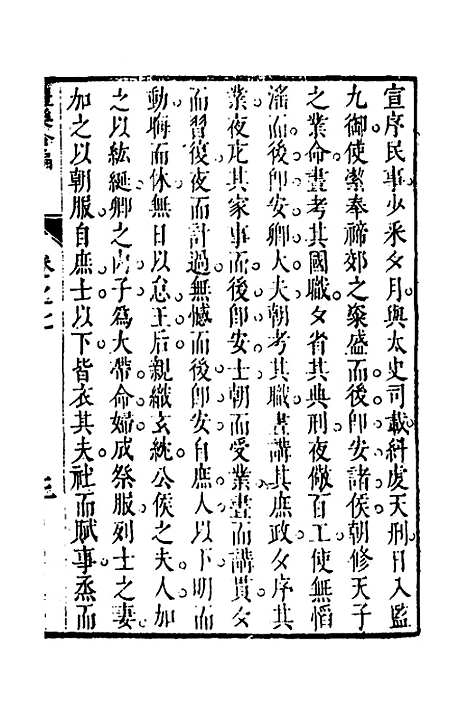 宣序民事少采夕月與太史司載糾虔天刑日入監
九御使潔奉禘郊之粢盛而後卽安諸侯朝修天子
之業命晝考其國職夕省其典刑夜儆百工使無慆
滛而後卽安卿大夫朝考其職晝講其庶政夕序其
業夜庀其家事而後卽安士朝而受業晝而講貫夕
而習復夜而計過無憾而後卽安自庶人以下明而
動晦而休無日以怠王后親織玄紞公侯之夫人加
之以紘綖卿之內子爲大帶命婦成祭服列士之妻
加之以朝服自庶士以下皆衣其夫社而賦事烝而
卷之七